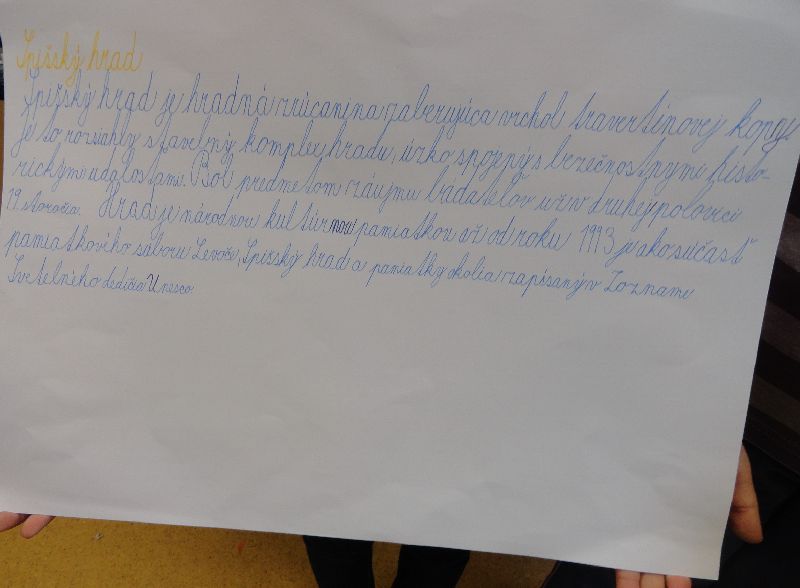 Spišský hrad
Spišský hrad je hradná zrúcanina zaberajúca vrchol travertínovej kopy.
Je to rozsiahly stavebný komplex hradu, úzko spojený s bezečnostnymi histo-
rickými udalosťami. Bol predmetom záujmu bádateľov už v druhej polovici
19. storočia. Hrad je národnou kultúrnou pamiatkou až od roku 1993 je ako súčasť
pamiatkového súboru Levoča, Spišský hrad a pamiatky okolia zapísaný v Zozname
Svetelného dedičia Unesco